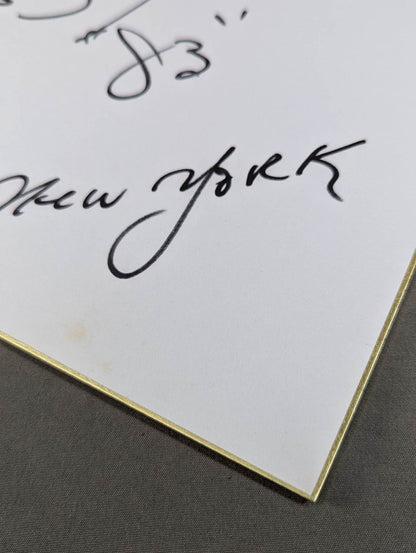 "83"
New York